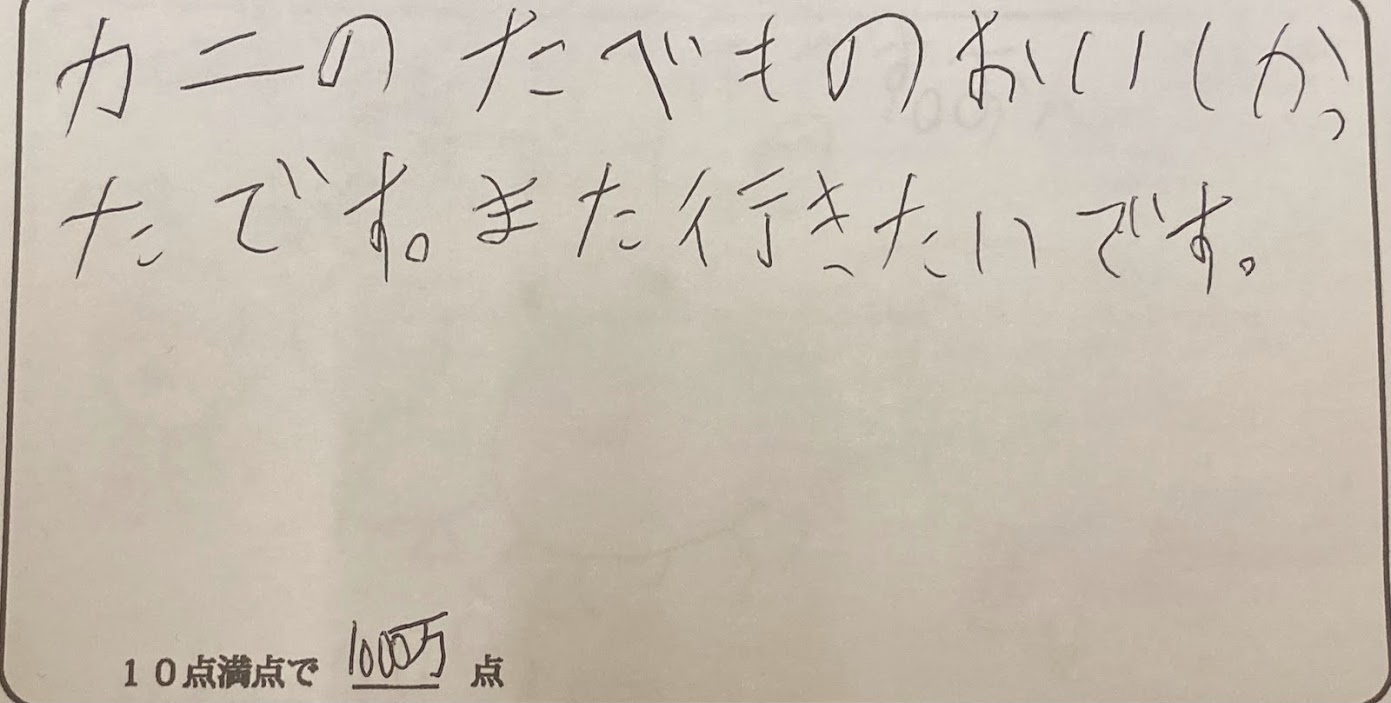 カニのたべものおいしかっ
たです。また行きたいです。
10点満点で 1000万 点